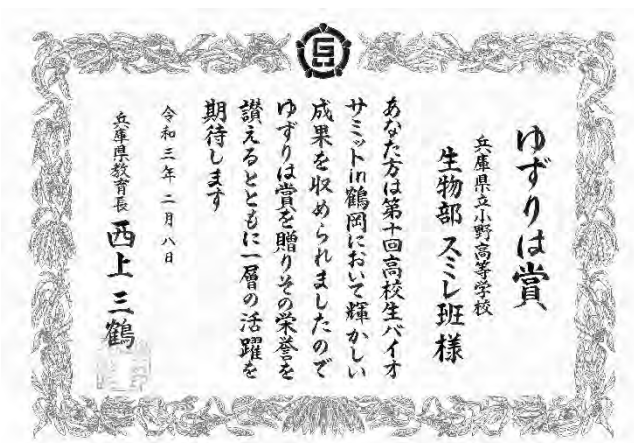 ゆずりは賞
兵庫県立小野高等学校
生物部 スミレ班 様
あなた方は第十回高校生バイオ
サミットin鶴岡において輝かしい
成果を収められましたので
ゆずりは賞を贈りその栄誉を
讃えるとともに一層の活躍を
期待します
令和三年 二月八日
兵庫県教育長 西上 三鶴